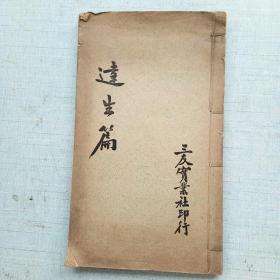 達生篇
三友實業社印行